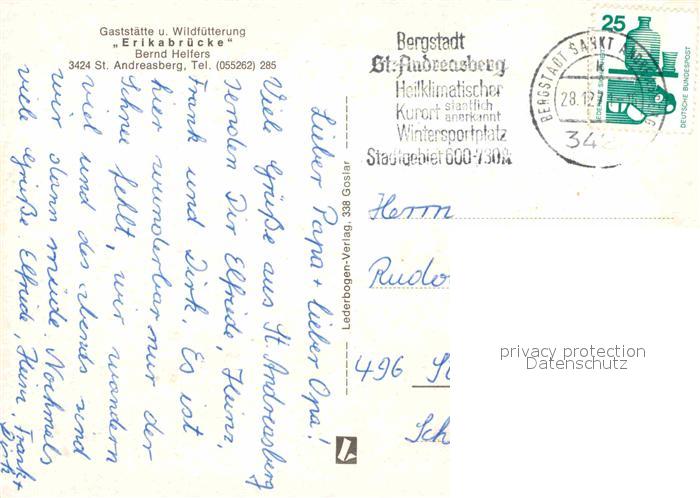 Gaststätte u. Wildfütterung
„Erikabrücke“
Bernd Helfers
3424 St. Andreasberg, Tel. (055262) 285
Lieber Papa + lieber Opa!
Viele Grüße aus St. Andreasberg
senden Dir Elfriede, Heinz,
Frank und Dirk. Es ist
hier wunderbar nur der
Schnee fehlt, wir wandern
viel und des abends sind
wir dann müde. Nochmals
viele Grüße Elfriede, Heinz, Frank +
Dirk
Lederbogen-Verlag, 338 Goslar
Bergstadt
St. Andreasberg
Heilklimatischer
Kurort staatlich anerkannt
Wintersportplatz
Stadtgebiet 600-730M
BERGSTADT SANKT
28.12.7
342
25
DEUTSCHE BUNDESPOST
Herrn
Rudo
496 S
Sch
privacy protection
Datenschutz